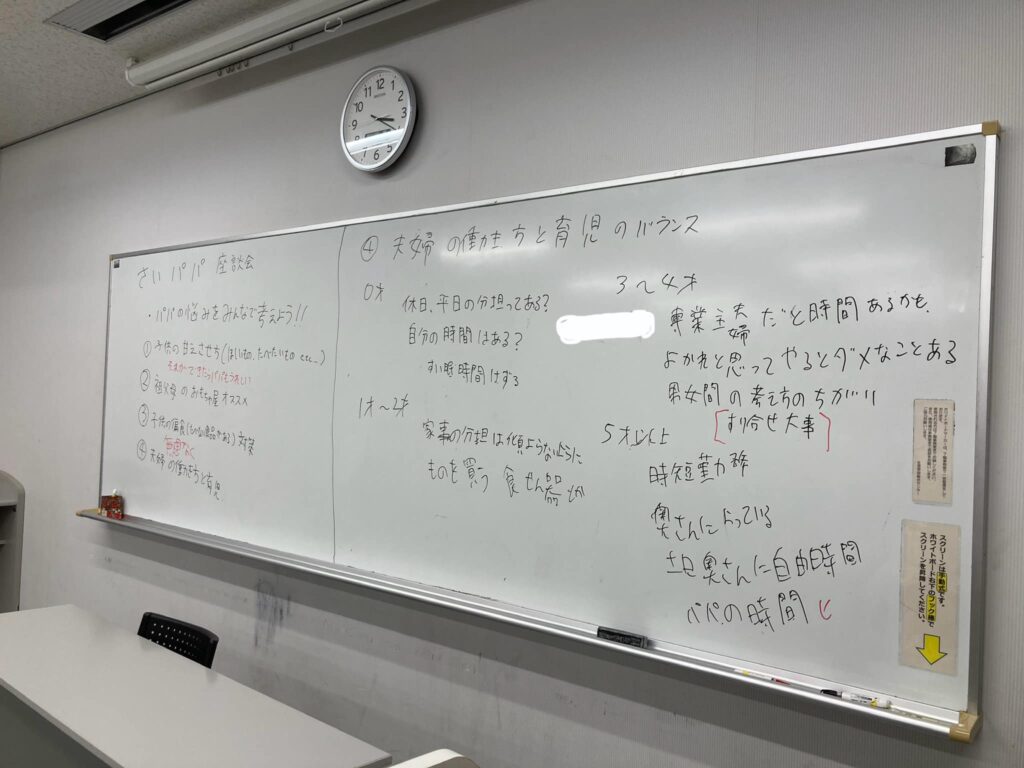 さいパパ 座談会
・パパの悩みをみんなで考えよう!!
① 子供の甘えさせ方(ほしいもの、たべたいもの etc...)
② 祖父母のおもちゃ屋オススメ
③ 子供の偏食 対策
無理なく
④ 夫婦の働き方と育児
④ 夫婦の働き方と育児のバランス
0才
休日、平日の分担ってある?
自分の時間はある?
すい眠時間けずる
1才〜2才
家事の分担は
ものを買う 食せん器とか
3〜4才
専業主夫婦だと時間あるかも、
よかれと思ってやるとダメなことある
男女間の考え方のちがい
[すり合せ大事]
5才以上
時短勤務
奥さんによっている
土日奥さんに自由時間
パパの時間
12
1
2
3
4
5
6
7
8
9
10
11
スクリーンは手動式です。
ホワイトボード右下のフック棒で
スクリーンを昇降してください。